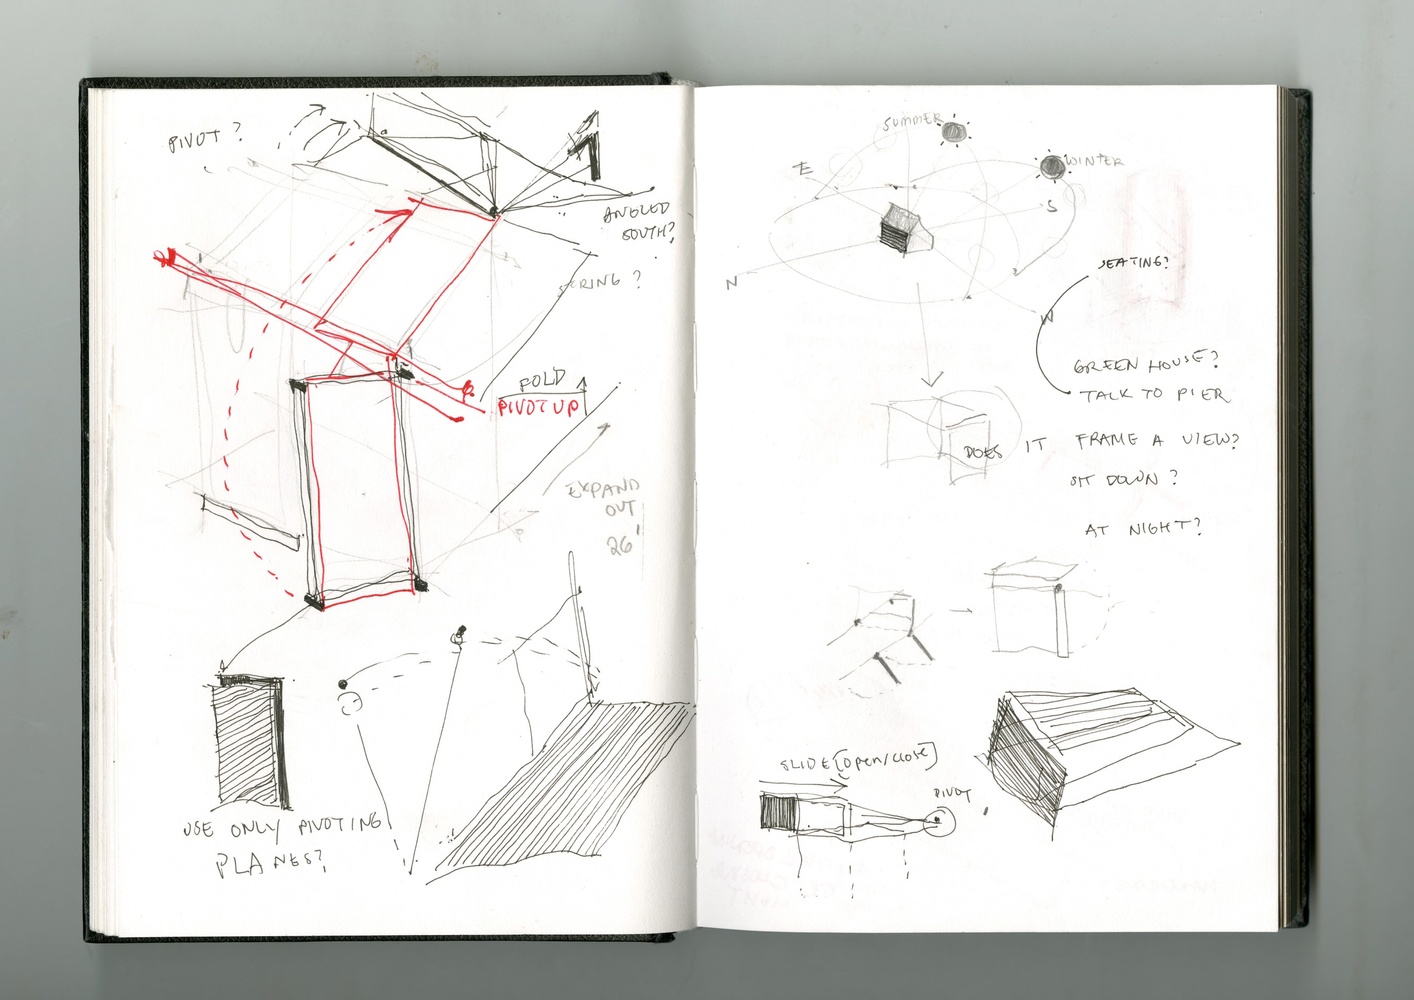 PIVOT?
ANGLED
SOUTH?
FOLD
PIVOT UP
EXPAND
OUT
26'
USE ONLY PIVOTING
PLANES?
SUMMER
WINTER
E
S
N
W
SEATING?
GREEN HOUSE?
TALK TO PIER
DOES IT FRAME A VIEW?
SIT DOWN?
AT NIGHT?
SLIDE [OPEN/CLOSE]
PIVOT